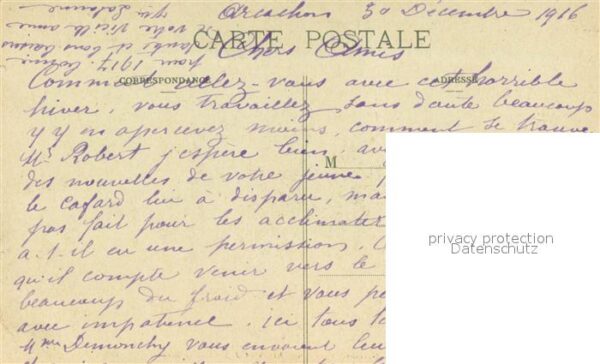 Arcachon 30 Décembre 1916
CARTE POSTALE
Chers Amis
CORRESPONDANCE
ADRESSE
Comment allez-vous avec cet horrible
hiver, vous travaillez sans doute beaucoup
y en apercevez moins, comment se trouve
Mr Robert j'espère bien, av
M
des nouvelles de votre jeune
le cafard lui a disparu, ma
pas fait pour les acclimater
a-t-il eu une permission,
qu'il compte venir vers le
beaucoup du froid et vous
avec impatience. ici tous
Mme vous envoient leu
de votre vieille amie
santé et bons baisers
pour 1917.
privacy protection
Datenschutz